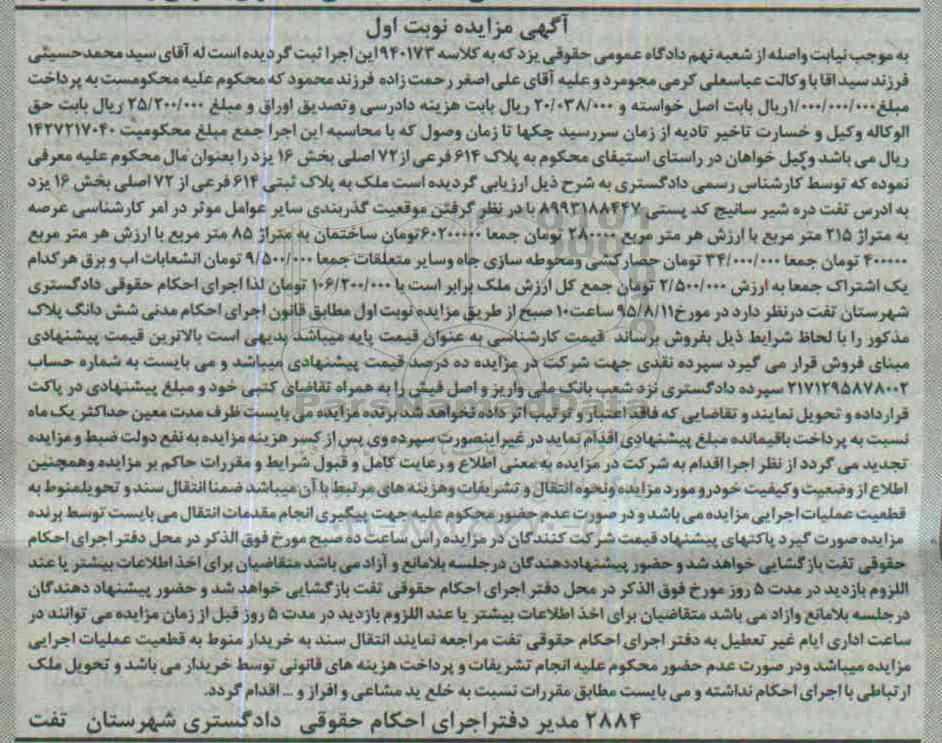 آگهی مزایده نوبت اول
به موجب نیابت واصله از شعبه نهم دادگاه عمومی حقوقی یزد که به کلاسه ۹۴۰۱۷۳ این اجرا ثبت گردیده است له آقای سید محمد حسینی
فرزند سید اقا با وکالت عباسعلی کرمی مجومرد و علیه آقای علی اصغر رحمت زاده فرزند محمود که محکوم علیه محکومست به پرداخت
مبلغ ۱/۰۰۰/۰۰۰/۰۰۰ریال بابت اصل خواسته و ۲۰/۰۳۸/۰۰۰ ریال بابت هزینه دادرسی وتصدیق اوراق و مبلغ ۲۵/۲۰۰/۰۰۰ ریال بابت حق
الوکاله وکیل و خسارت تاخیر تادیه از زمان سررسید چکها تا زمان وصول که با محاسبه این اجرا جمع مبلغ محکومیت ۱۴۲۷۲۱۷۰۴۰
ریال می باشد وکیل خواهان در راستای استیفای محکوم به پلاک ۶۱۴ فرعی از۷۲ اصلی بخش ۱۶ یزد را بعنوان مال محکوم علیه معرفی
نموده که توسط کارشناس رسمی دادگستری به شرح ذیل ارزیابی گردیده است ملک به پلاک ثبتی ۶۱۴ فرعی از ۷۲ اصلی بخش ۱۶ یزد
به ادرس تفت دره شیر سانیج کد پستی ۸۹۹۳۱۸۸۴۴۷ با در نظر گرفتن موقعیت گذربندی سایر عوامل موثر در امر کارشناسی عرصه
به متراژ ۲۱۵ متر مربع با ارزش هر متر مربع ۲۸۰۰۰۰ تومان جمعا ۶۰۲۰۰۰۰۰تومان ساختمان به متراژ ۸۵ متر مربع با ارزش هر متر مربع
۴۰۰۰۰۰ تومان جمعا ۳۴/۰۰۰/۰۰۰ تومان حصارکشی ومحوطه سازی چاه وسایر متعلقات جمعا ۹/۵۰۰/۰۰۰ تومان انشعابات اب و برق هر کدام
یک اشتراک جمعا به ارزش ۲/۵۰۰/۰۰۰ تومان جمع کل ارزش ملک برابر است با ۱۰۶/۲۰۰/۰۰۰ تومان لذا اجرای احکام حقوقی دادگستری
شهرستان تفت درنظر دارد در مورخ۹۵/۸/۱۱ ساعت۱۰ صبح از طریق مزایده نوبت اول مطابق قانون اجرای احکام مدنی شش دانگ پلاک
مذکور را با لحاظ شرایط ذیل بفروش برساند قیمت کارشناسی به عنوان قیمت پایه میباشد بدیهی است بالاترین قیمت پیشنهادی
مبنای فروش قرار می گیرد سپرده نقدی جهت شرکت در مزایده ده درصد قیمت پیشنهادی میباشد و می بایست به شماره حساب
۲۱۷۱۲۹۵۸۷۸۰۰۲ سپرده دادگستری نزد شعب بانک ملی واریز و اصل فیش را به همراه تقاضای کتبی خود و مبلغ پیشنهادی در پاکت
قرارداده و تحویل نمایند و تقاضایی که فاقد اعتبار و ترتیب اثر داده نخواهد شد برنده مزایده می بایست ظرف مدت معین حداکثر یک ماه
نسبت به پرداخت باقیمانده مبلغ پیشنهادی اقدام نماید در غیراینصورت سپرده وی پس از کسر هزینه مزایده به نفع دولت ضبط و مزایده
تجدید می گردد از نظر اجرا اقدام به شرکت در مزایده به معنی اطلاع و رعایت کامل و قبول شرایط و مقررات حاکم بر مزایده وهمچنین
اطلاع از وضعیت وکیفیت خودرو مورد مزایده ونحوه انتقال و تشریفات وهزینه های مرتبط با آن میباشد ضمنا انتقال سند و تحویلمنوط به
قطعیت عملیات اجرایی مزایده می باشد و در صورت عدم حضور محکوم علیه جهت پیگیری انجام مقدمات انتقال می بایست توسط برنده
مزایده صورت گیرد پاکتهای پیشنهاد قیمت شرکت کنندگان در مزایده راس ساعت ده صبح مورخ فوق الذکر در محل دفتر اجرای احکام
حقوقی تفت بازگشایی خواهد شد و حضور پیشنهاددهندگان درجلسه بلامانع و آزاد می باشد متقاضیان برای اخذ اطلاعات بیشتر یا عند
اللزوم بازدید در مدت ۵ روز مورخ فوق الذکر در محل دفتر اجرای احکام حقوقی تفت بازگشایی خواهد شد و حضور پیشنهاد دهندگان
درجلسه بلامانع وازاد می باشد متقاضیان برای اخذ اطلاعات بیشتر یا عند اللزوم بازدید در مدت ۵ روز قبل از زمان مزایده می توانند در
ساعت اداری ایام غیر تعطیل به دفتر اجرای احکام حقوقی تفت مراجعه نمایند انتقال سند به خریدار منوط به قطعیت عملیات اجرایی
مزایده میباشد ودر صورت عدم حضور محکوم علیه انجام تشریفات و پرداخت هزینه های قانونی توسط خریدار می باشد و تحویل ملک
ارتباطی با اجرای احکام نداشته و می بایست مطابق مقررات نسبت به خلع ید مشاعی و افراز و ... اقدام گردد.
۲۸۸۴ مدیر دفتر اجرای احکام حقوقی دادگستری شهرستان تفت
ParsNamadData